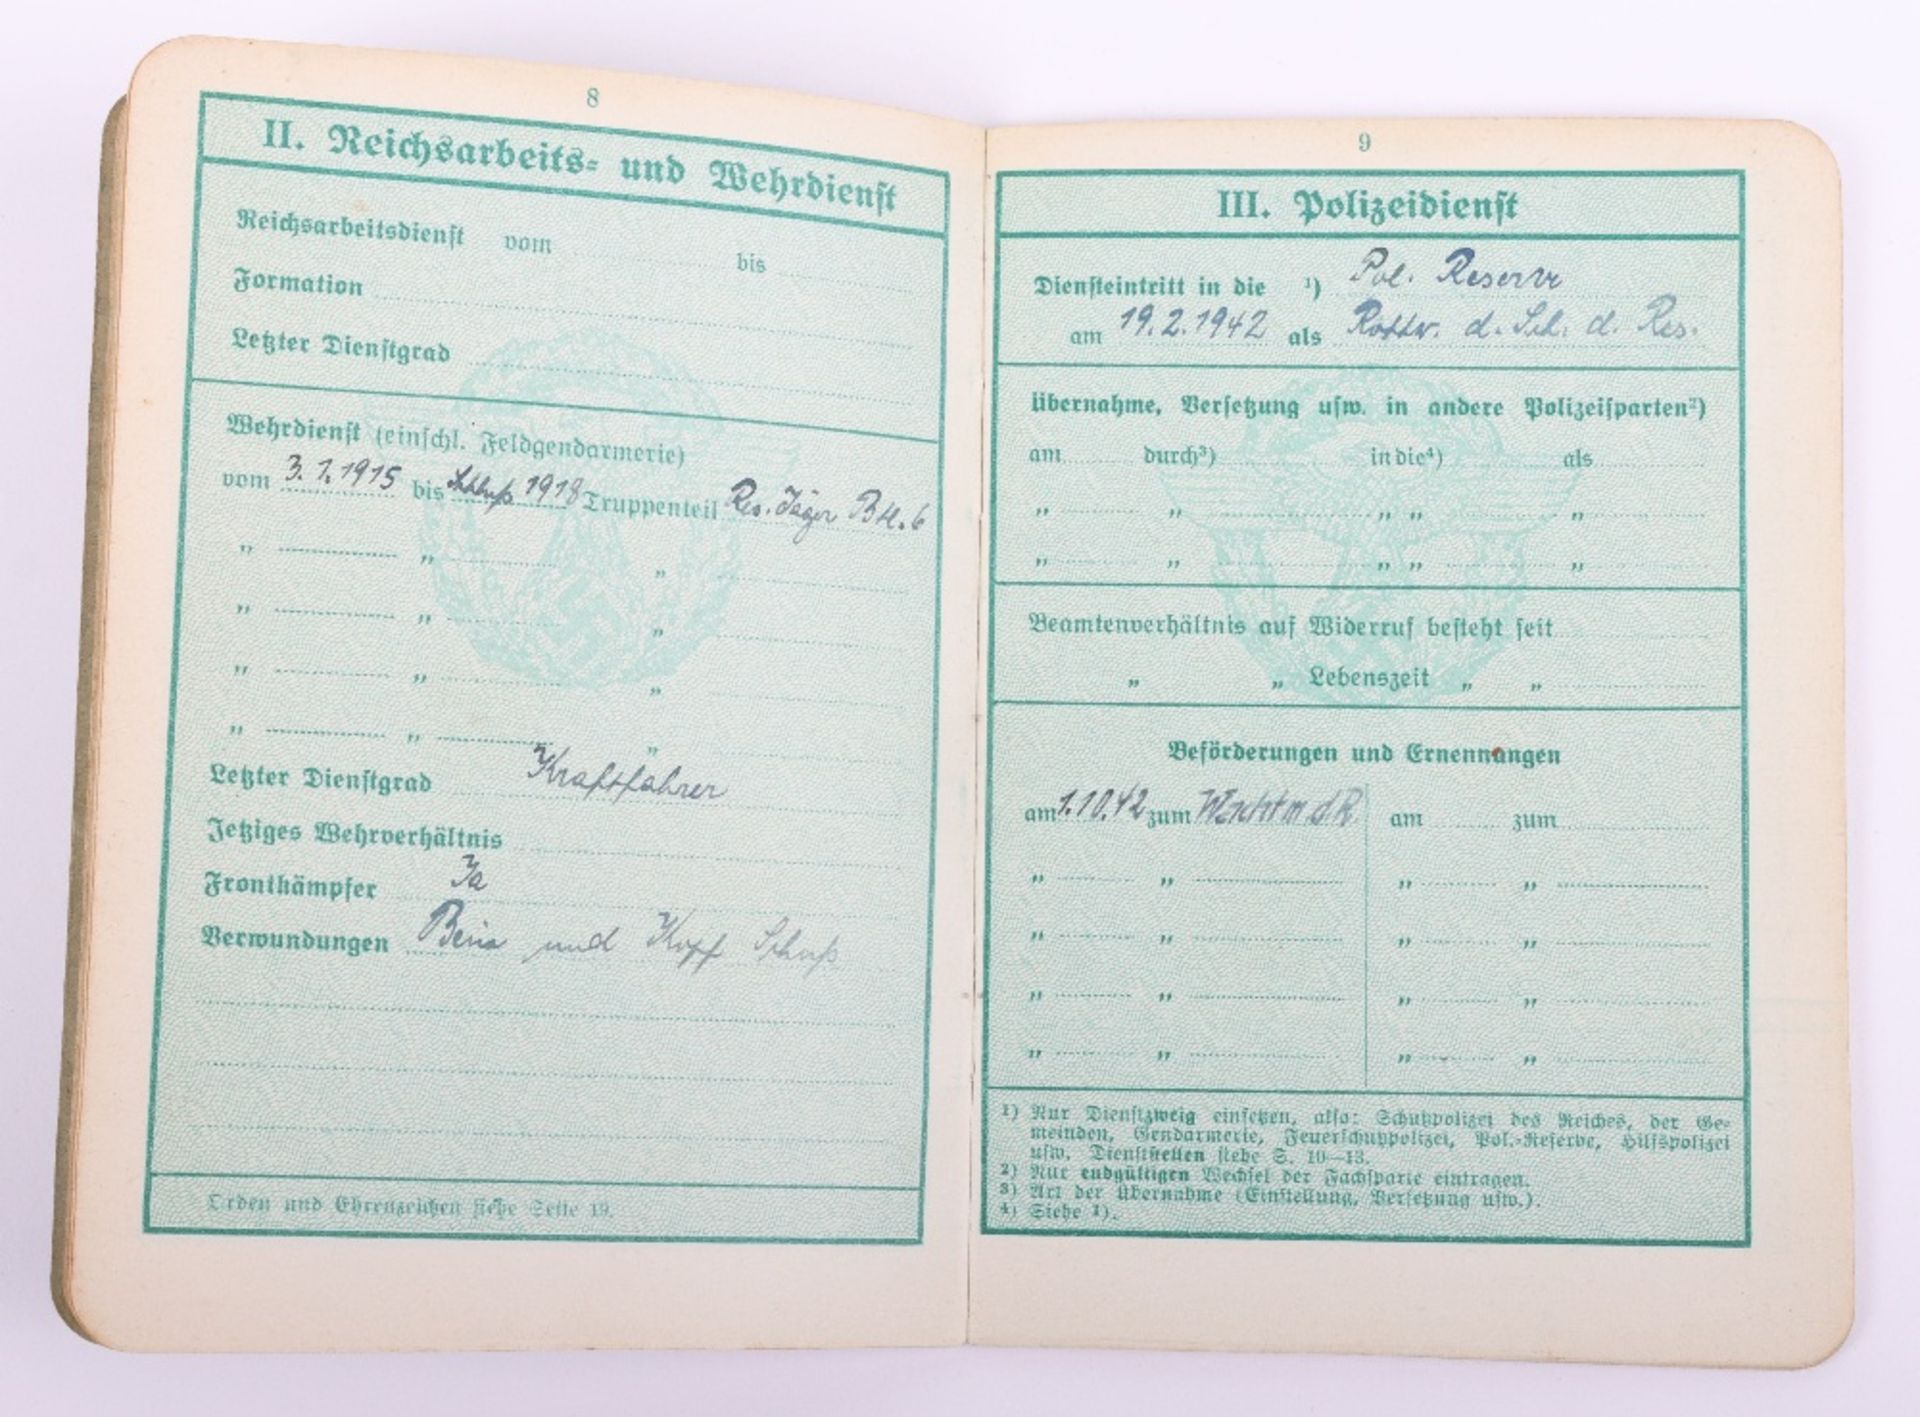 8
II. Reichsarbeits- und Wehrdienst
Reichsarbeitsdienst vom bis
Formation
Letzter Dienstgrad
Wehrdienst (einschl. Feldgendarmerie)
vom 3.1.1915 bis Schluß 1918 Truppenteil Res. Jäger Btl. 6
" " "
" " "
" " "
" " "
Letzter Dienstgrad Kraftfahrer
Jetziges Wehrverhältnis
Frontkämpfer Ja
Verwundungen Bein und Kopf Schuß
Orden und Ehrenzeichen siehe Seite 19.
9
III. Polizeidienst
Diensteintritt in die ¹) Pol. Reserve
am 19.2.1942 als Rottw. d. Sch. d. Res.
Übernahme, Versetzung usw. in andere Polizeisparten²)
am durch³) in die⁴) als
" " " " "
" " " " "
Beamtenverhältnis auf Widerruf besteht seit
" " Lebenszeit " "
Beförderungen und Ernennungen
am 1.10.42 zum Wachtm d R. am zum
" " " "
" " " "
" " " "
" " " "
¹) Nur Dienstzweig einsetzen, also: Schutzpolizei des Reiches, der Ge-
meinden, Gendarmerie, Feuerschutzpolizei, Pol.-Reserve, Hilfspolizei
usw. Dienststellen siehe S. 10—13.
²) Nur endgültigen Wechsel der Fachsparte eintragen.
³) Art der Übernahme (Einstellung, Versetzung usw.).
⁴) Siehe ¹).